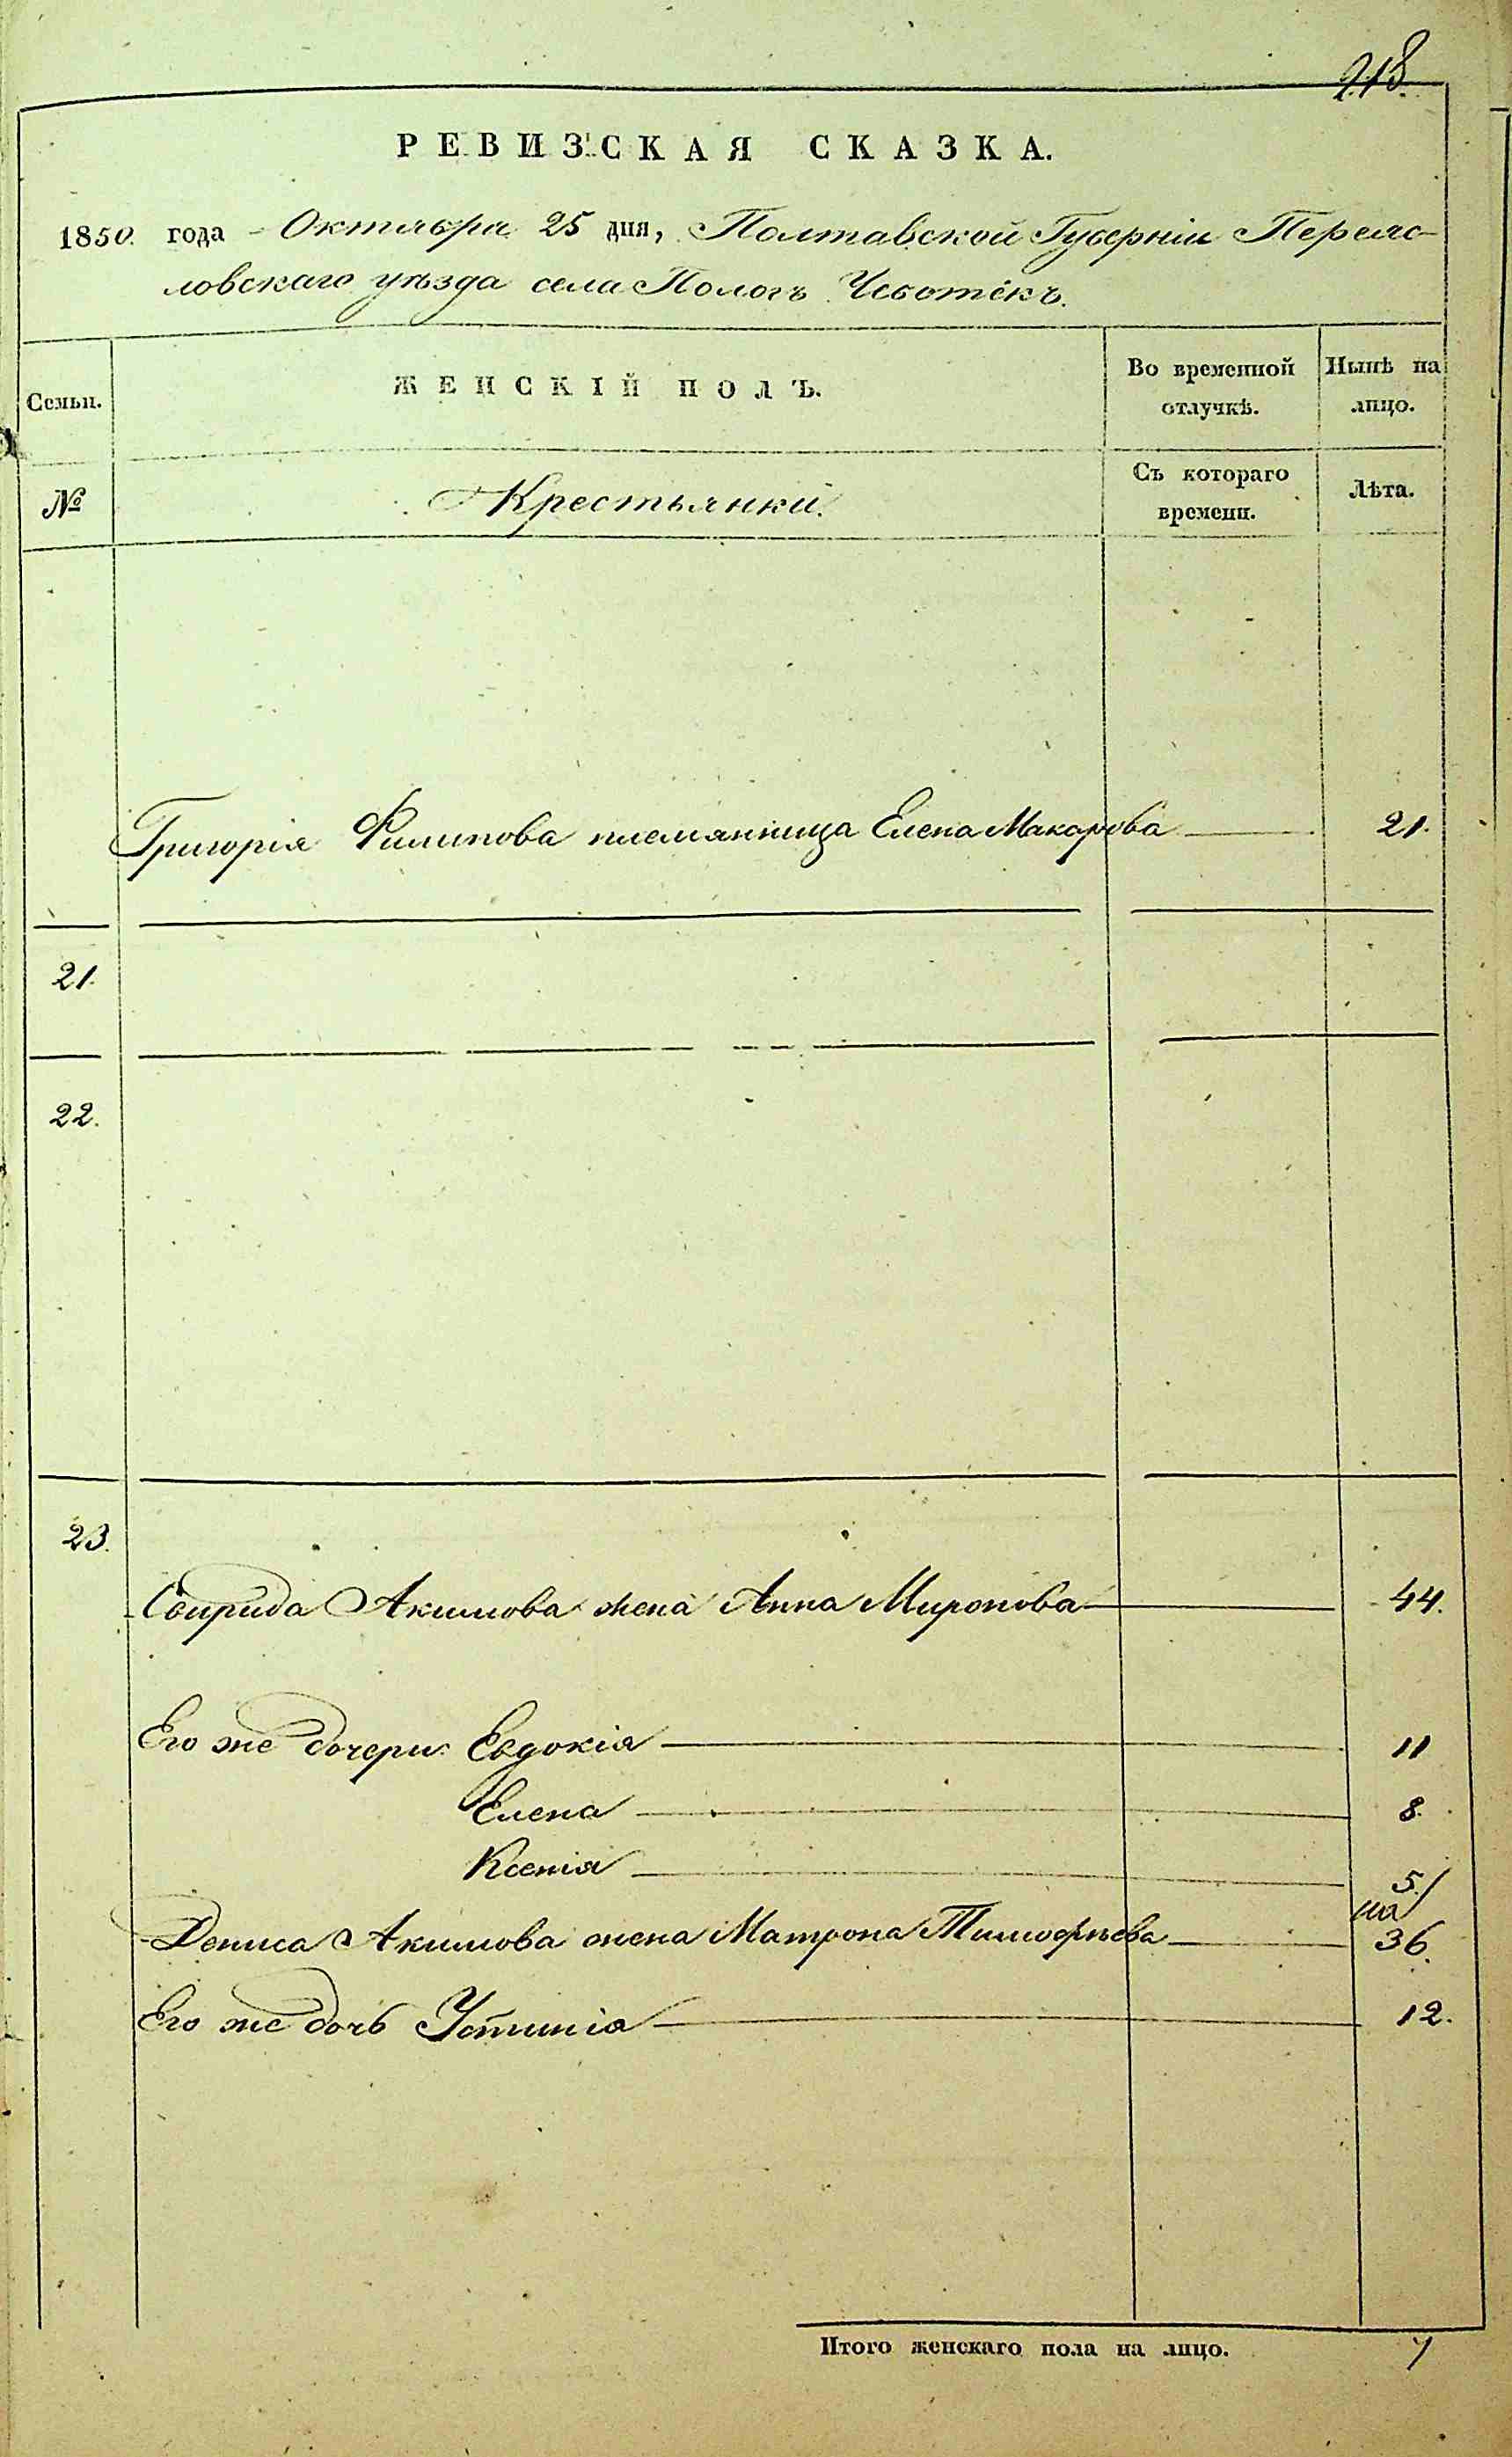 218.
РЕВИЗСКАЯ СКАЗКА.
1850. года - Октября 25 дня, Полтавской Губерніи Переяс-
ловскаго уѣзда села Пологъ Чеботекъ.
Семьи. ЖЕНСКІЙ ПОЛЪ. Во временной отлучкѣ. Нынѣ на лицо.
№ Крестьянки. Съ котораго времени. Лѣта.
Григорія Филипова племянница Елена Макарова 21.
21.
22.
23.
Свирида Акимова жена Анна Миронова 44.
Его же дочери: Евдокія 11
Елена 8.
Ксенія 5.
Дениса Акимова жена Матрона Тимофѣева 36.
Его же дочь Устинія 12.
Итого женскаго пола на лицо. 7